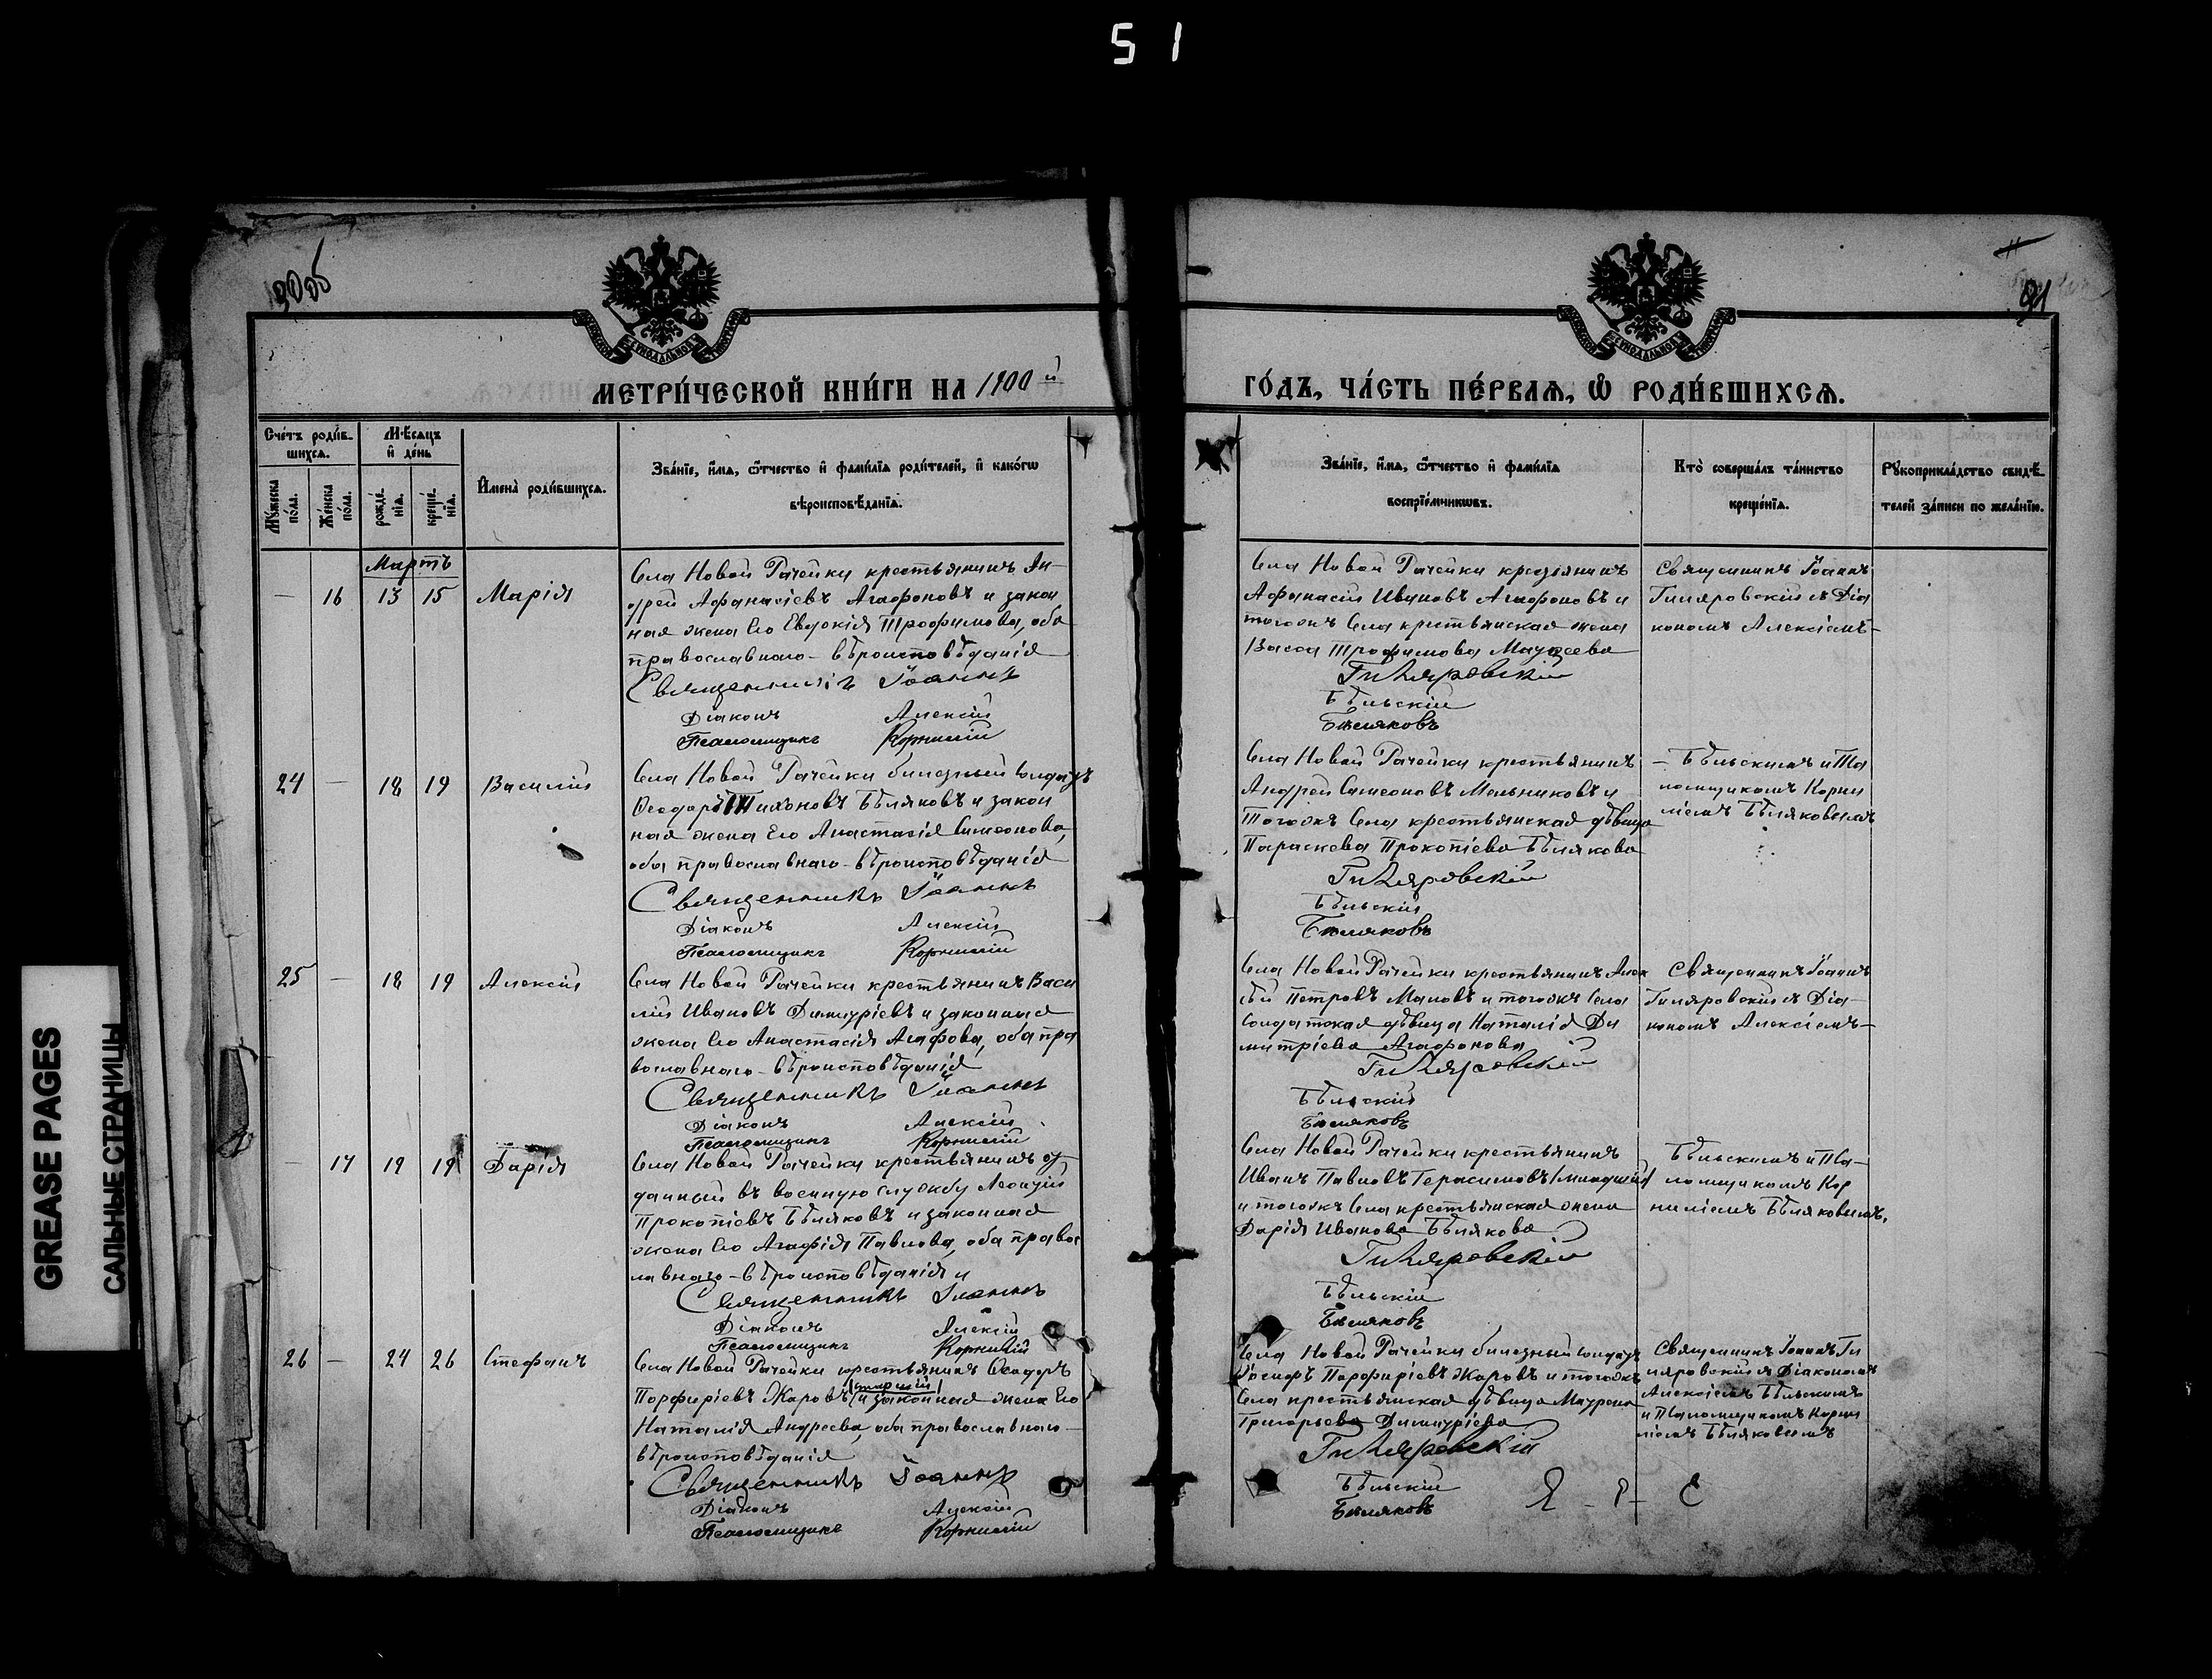 51
91
МЕТРИ́ЧЕСКОЙ КНИ́ГИ НА 1900 й
ГО́ДЪ, ЧА́СТЬ ПЕ́РВАѦ, Ѿ РОДИ́ВШИХСѦ.
Сче́тъ роди́в-
шихсѧ.
Мꙋ́жеска по́ла.
Же́нска по́ла.
Мѣ́сѧцъ
и҆ де́нь
рожде́-
нїѧ.
креще́-
нїѧ.
И҆мена̀ роди́вшихсѧ.
Зва́нїе, и҆́мѧ, ѻ҆́тчество и҆ фами́лїѧ роди́телей, и҆ како́гѡ
вѣроисповѣ́данїѧ.
Зва́нїе, и҆́мѧ, ѻ҆́тчество и҆ фами́лїѧ
воспрїе́мникѡвъ.
Кто̀ соверша́лъ та́инство
креще́нїѧ.
Рꙋкоприкла́дство свидѣ́-
телей за́писи по жела́нїю.
Мартъ
— 16 13 15 Марія
Села Новой Рачейки крестьянинъ Ан-
дрей Афанасіевъ Агафоновъ и закон
ная жена его Евдокія Трофимова, оба
православнаго-вѣроисповѣданія
Священникъ Іоаннъ
Діаконъ Алексій
Псаломщикъ Корнилій
Села Новой Рачейки крестьянинъ
Афанасій Ивановъ Агафоновъ и
тогожъ села крестьянская жена
Васса Трофимова Мадеева
Гиляровскій
Бѣльскій
Бѣляковъ
Священникъ Іоаннъ
Гиляровскій съ Діа
кономъ Алексіемъ-
24 — 18 19 Василій
Села Новой Рачейки билетный солдатъ
Ѳеодоръ Тихоновъ Бѣляковъ и закон
ная жена его Анастасія Симеонова,
оба православнаго-вѣроисповѣданія
Священникъ Іоаннъ
Діаконъ Алексій
Псаломщикъ Корнилій
Села Новой Рачейки крестьянинъ
Андрей Симеоновъ Мельниковъ и
тогожъ села крестьянская дѣвица
Параскева Прокопіева Бѣлякова
Гиляровскій
Бѣльскій
Бѣляковъ
— Бѣльскимъ и Пса
ломщикомъ Корни
ліемъ Бѣляковымъ
25 — 18 19 Алексій
Села Новой Рачейки крестьянинъ Васи
лій Ивановъ Димитріевъ и законная
жена его Анастасія Агафова, оба пра
вославнаго-вѣроисповѣданія
Священникъ Іоаннъ
Діаконъ Алексій
Псаломщикъ Корнилій
Села Новой Рачейки крестьянинъ Алек
сѣй Петровъ Маловъ и тогожъ села
солдатская дѣвица Наталія Ди
митріева Агафонова
Гиляровскій
Бѣльскій
Бѣляковъ
Священникъ Іоаннъ
Гиляровскій съ Діа-
кономъ Алексіемъ-
— 17 19 19 Дарія
Села Новой Рачейки крестьянинъ от
данный въ военную службу Леонтій
Прокопіевъ Бѣляковъ и законная
жена его Агафія Павлова, оба правос
лавнаго-вѣроисповѣданія
Священникъ Іоаннъ
Діаконъ Алексій
Псаломщикъ Корнилій
Села Новой Рачейки крестьянинъ
Иванъ Павловъ Герасимовъ /младшій/
и тогожъ села крестьянская жена
Дарія Иванова Бѣлякова
Гиляровскій
Бѣльскій
Бѣляковъ
Бѣльскимъ и Пса-
ломщикомъ Кор
ниліемъ Бѣляковымъ.
26 — 24 26 Стефанъ
Села Новой Рачейки крестьянинъ Ѳеодоръ
Порфиріевъ Жаровъ /старшій/ и законная жена его
Наталія Андреева, оба православнаго-
вѣроисповѣданія
Священникъ Іоаннъ
Діаконъ Алексій
Псаломщикъ Корнилій
Села Новой Рачейки билетный солдатъ
Іосифъ Порфиріевъ Жаровъ и тогожъ
села крестьянская дѣвица Маврона
Григорьева Димитріева
Гиляровскій
Бѣльскій
Бѣляковъ
Священникъ Іоаннъ Ги
ляровскій съ Діакономъ
Алексіемъ Бѣльскимъ
и Псаломщикомъ Корни
ліемъ Бѣляковымъ
GREASE PAGES
САЛЬНЫЕ СТРАНИЦЫ